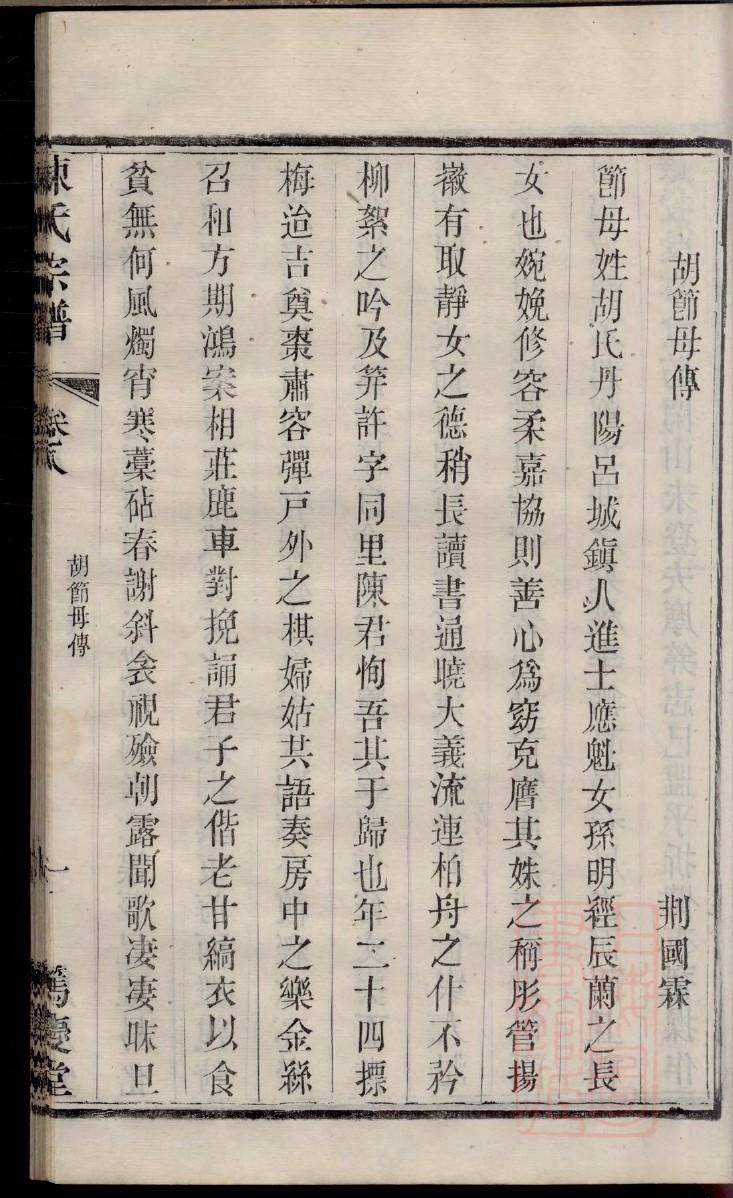 胡節母傳
荆國霖
節母姓胡氏丹陽呂城鎭人進士應魁女孫明經辰蘭之長
女也婉娩修容柔嘉協則善心爲窈克膺其姝之稱彤管揚
徽有取靜女之德稍長讀書通曉大義流連柏舟之什不矜
柳絮之吟及笄許字同里陳君恂吾其于歸也年二十四摽
梅迨吉奠棗肅容彈戸外之棋婦姑共語奏房中之樂金絲
召和方期鴻案相莊鹿車對挽誦君子之偕老甘縞衣以食
貧無何風燭宵寒藁砧春謝斜衾視殮朝露聞歌凄凄昧旦
陳氏宗譜
卷八
胡節母傳
一
篤慶堂